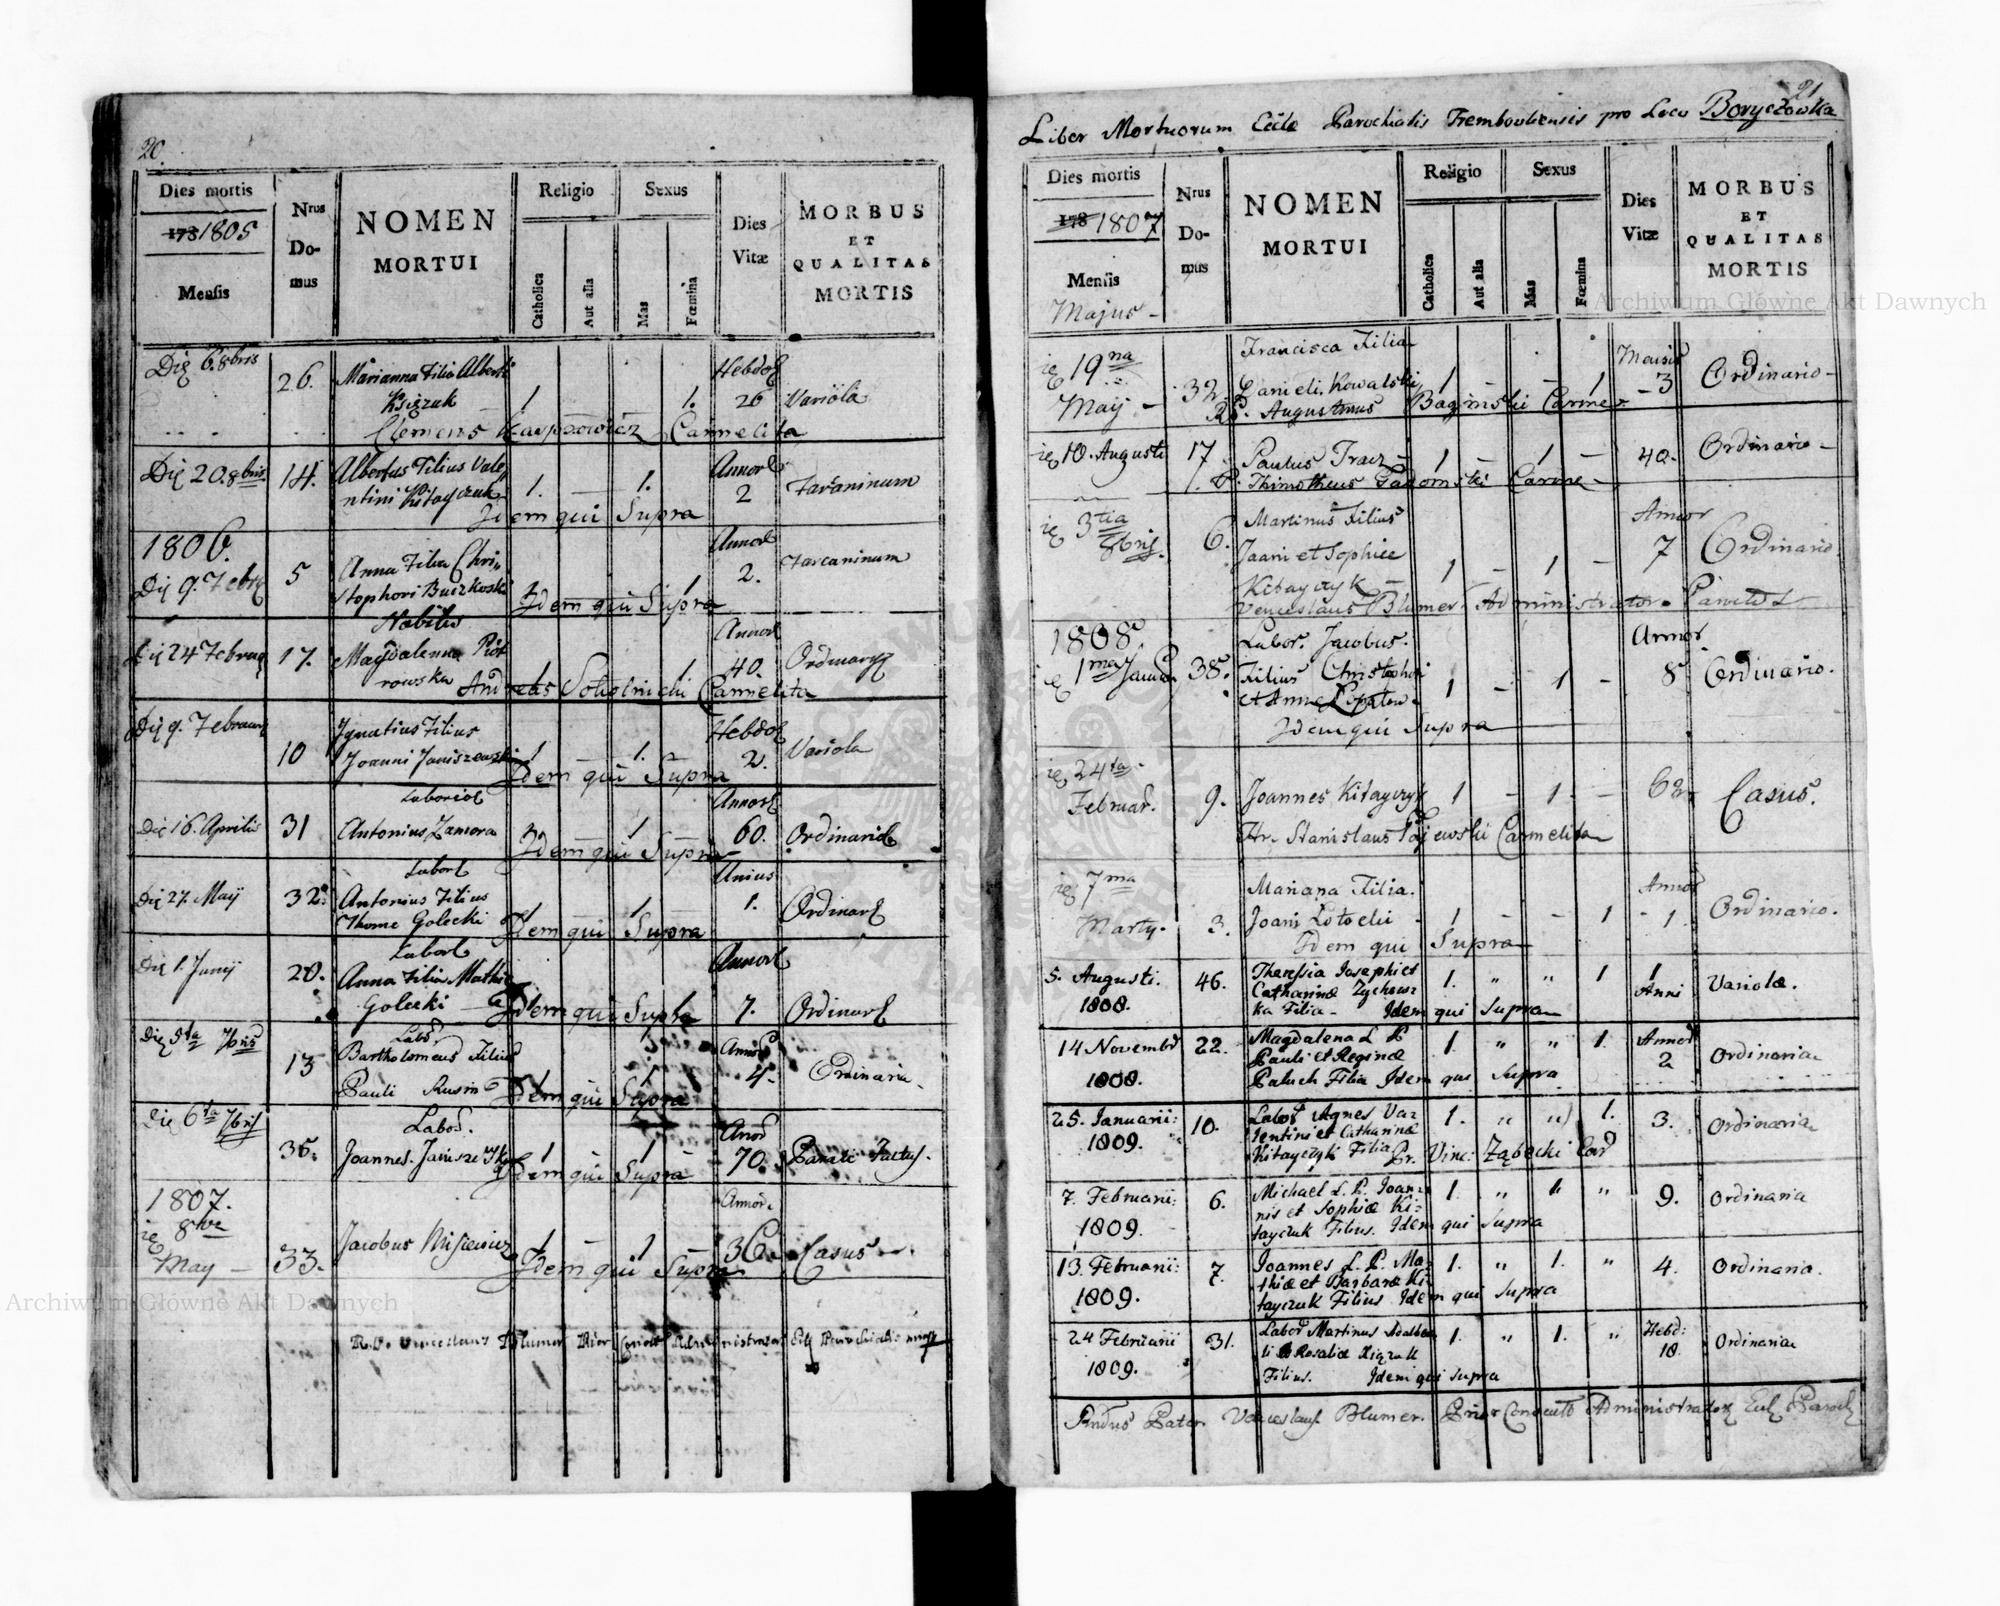 20.
Dies mortis
1805
Mensis
Nrus
Do-
mus
NOMEN
MORTUI
Religio
Catholica
Aut alia
Sexus
Mas
Fœmina
Dies
Vitæ
MORBUS
ET
QUALITAS
MORTIS
Die 6. 8bris 26. Marianna Filia Alberti Hebdo
Księzuk 1 1. 26 Variola
Clemens Karpowicz Carmelita
Die 20. 8bris 14. Albertus Filius Vale Annor
ntini Kitayczuk 1. — 1. 2
Idem qui Supra
1806. Annor
Die 9. Febr 5 Anna Filia Chri 2.
stophori Buczkoski 1
Idem qui Supra
Nobilis Annor
Die 24 Februa 17. Magdalenna Piot 1 1 40. Ordinary
rowska
Andreas Carmelita
Die 9. Februa Ignatius Filius Hebdo
10 Joanni Janiszewski 1 1. 2. Variola
Idem qui Supra
Laborios Annor
Die 16. Aprilis 31 Antonius Zamora 1 1 60. Ordinario
Idem qui Supra
Labor Unius
Die 27. Maij 32. Antonius Filius 1.
Thome Golecki 1 1 Ordinar
Idem qui Supra
Labor Annor
Die 1. Junij 20. Anna Filia Mathi
Golecki 7. Ordinar
Idem qui Supra
Die 5ta 7bris Labor Annor
13 Bartholomeus Filius 4. Ordinaria
Pauli Rusin 1 1
Idem qui Supra
Die 6ta 7bris Labor. Anor
35. Joannes 1 1 70.
Idem qui Supra
1807. Annor.
8va Jacobus 1 — 1 36. Casus
May — 33.
Idem qui Supra
R. P. Venceslaus Blumer Prior Convent Administrator Parochialis
21
Liber Mortuorum Eccle Parochialis Trembovliensis pro Loco Boryczowka
Dies mortis
178 1807
Mensis
Majus —
Nrus
Do-
mus
NOMEN
MORTUI
Religio
Catholica
Aut alia
Sexus
Mas
Fœmina
Dies
Vitæ
MORBUS
ET
QUALITAS
MORTIS
Francisca Filia
19na 32. Danieli Kowalski 1 — — 1 — 3 Ordinario —
Maij — Augustinus Baginski Carmel
10. Augusti 17. Paulus Tracz — 1 — 1 — 40. Ordinario —
Thimotheus Gadomski Carme —
3tia Martinus Filius Annor
8bris. 6. Joani et Sophiee 7 Ordinario
Kitayczyk 1 — 1 —
Venceslaus Blumer Administrator
1808. Labor. Jacobus. Annor
1ma Janua 38. Filius Christophori 8 Ordinario.
et Anne 1 — 1 —
Idem qui Supra
24ta
Februar. 9. Joannes Kitayczyk 1 — 1 — Casus.
Fr. Stanislaus Carmelita
7ma Mariana Filia. Annor
Marty. 3. Joani 1 — — 1 — 1. Ordinario.
Idem qui Supra
5. Augusti. 46. Theressia Josephi et 1. " " 1 1 Variolæ.
1808. Catharinæ Zychows Anni
ka Filia — Idem qui Supra
14 Novembr 22. Magdalena L P 1. " " 1. Annor Ordinaria
1808. Pauli et Reginæ 2
Paluch Filia Idem qui Supra
25. Januarii: 10. Labor Agnes Va= 1. " " 1. 3. Ordinaria
1809. lentini et Catharinæ
Kitayczyk Filia Pr. Vinc: Ząbecki
7. Februarii: 6. Michael L. P. Joan= 1. " 1. " 9. Ordinaria
1809. nis et Sophiæ Ki=
tayczuk Filius. Idem qui Supra
13. Februarii: 7. Joannes L. P. Ma= 1. " 1. " 4. Ordinaria.
1809. thiæ et Barbaræ Ki=
tayczuk Filius Idem qui Supra
24 Februarii 31. Labor Martinus Adalber 1. " 1. " Hebd: Ordinaria
1809. ti et Rosaliæ 18.
Filius. Idem qui Supra
Pater Venceslaus Blumer. Prior Administrator
Archiwum Główne Akt Dawnych
Archiwum Główne Akt Dawnych